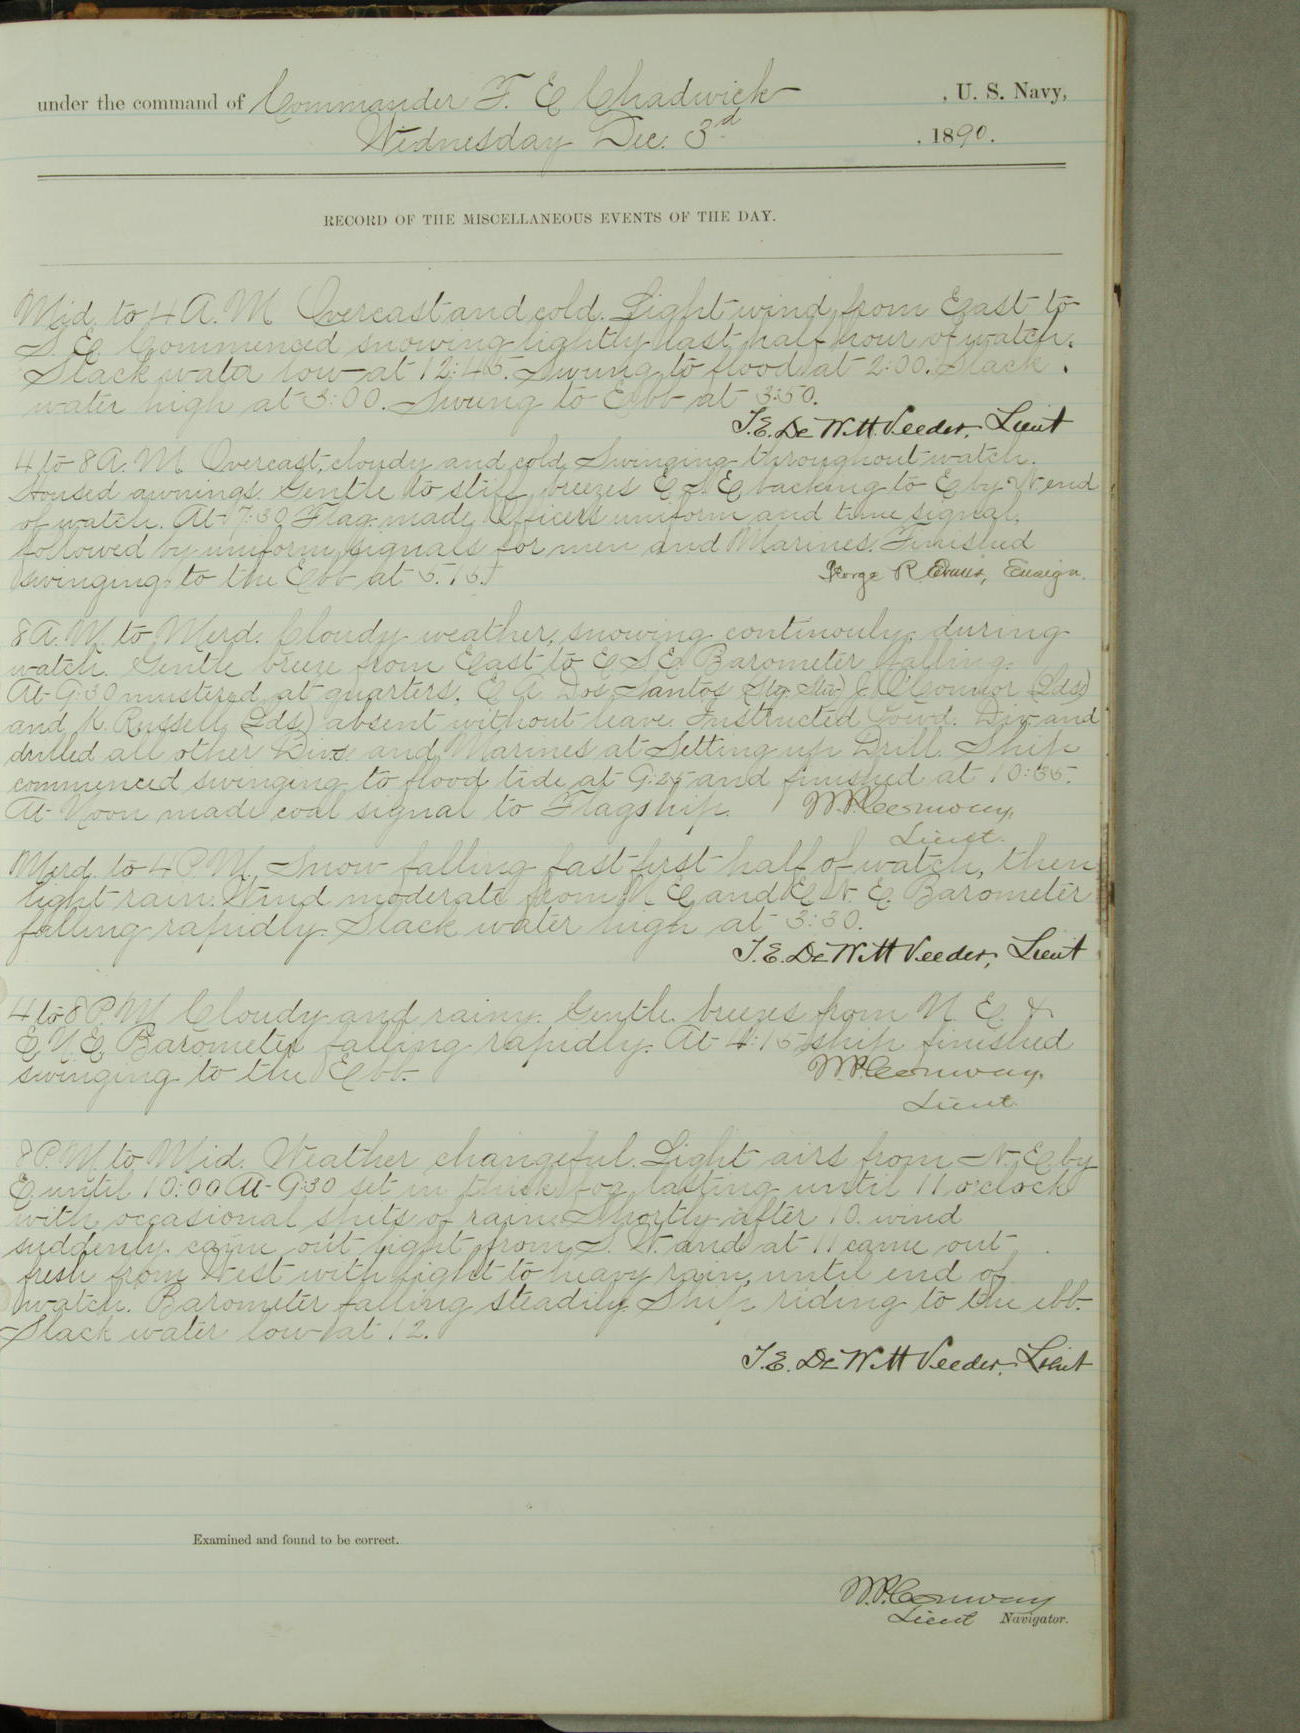 under the command of Commander F. E. Chadwick, U. S. Navy,
Wednesday Dec. 3d, 1890.
RECORD OF THE MISCELLANEOUS EVENTS OF THE DAY.
Mid. to 4 A.M. Overcast and cold. Light wind from East to
S.E. Commenced snowing lightly last half hour of watch.
Slack water low at 12:45. Swung to flood at 2:00. Slack
water high at 3:00. Swung to Ebb at 3:50.
T.E. De Witt Veeder, Lieut
4 to 8 A.M. Overcast, cloudy and cold. Swinging throughout watch.
Housed awnings. Gentle to stiff breezes E.S.E. backing to E by N end
of watch. At 7:30 Flag made Officers uniform and time signal,
followed by uniform signals for men and Marines. Finished
swinging to the Ebb at 5.15.
George R. Evans, Ensign.
8 A.M. to Merd. Cloudy weather, snowing continouly during
watch. Gentle breeze from East to E.S.E. Barometer falling.
At 9:30 mustered at quarters. E.A. Dos Santos J. O'Connor (Lds)
and K. Russell (Lds) absent without leave. Instructed Powd. Div and
drilled all other Divs. and Marines at Setting up Drill. Ship
commenced swinging to flood tide at 9:25 and finished at 10:35.
At Noon made coal signal to Flagship.
W.P. Conway,
Lieut.
Merd. to 4 P.M. Snow falling fast first half of watch, then
light rain. Wind moderate from N.E. and E.N.E. Barometer
falling rapidly. Slack water high at 3:30.
T.E. De Witt Veeder, Lieut
4 to 8 P.M. Cloudy and rainy. Gentle breezes from N.E. &
E.N.E. Barometer falling rapidly. At 4:15 ship finished
swinging to the Ebb.
W.P. Conway.
Lieut.
8 P.M. to Mid. Weather changeful. Light airs from N.E. by
E. until 10:00 At 9:30 set in thick fog lasting until 11 o'clock
with occasional spits of rain. Shortly after 10. wind
suddenly came out light from S.W. and at 11 came out
fresh from West with light to heavy rain, until end of
watch. Barometer falling steadily. Ship riding to the ebb.
Slack water low at 12.
T.E. De Witt Veeder, Lieut
Examined and found to be correct.
W.P. Conway
Lieut Navigator.